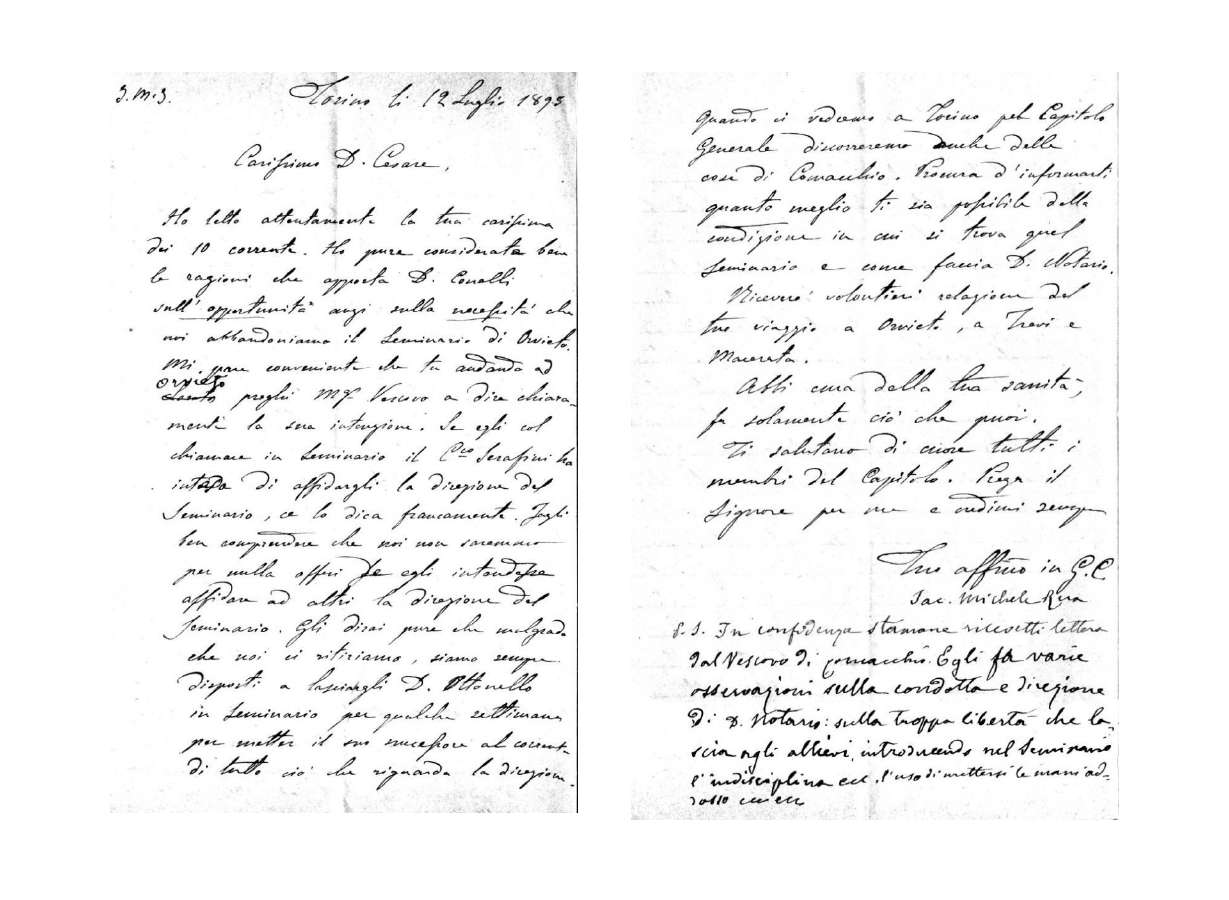 J. M. J.
Torino li 12 Luglio 1895
Carissimo D. Cesare,
Ho letto attentamente la tua carissima
dei 10 corrente. Ho pure considerate bene
le ragioni che apporta D. Conelli
sull'opportunità anzi sulla necessità che
noi abbandoniamo il Seminario di Orvieto.
Mi pare conveniente che tu andando ad
Orvieto preghi Mgr Vescovo a dire chiara-
mente la sua intenzione. Se egli col
chiamare in Seminario il Cco Serafini ha
inteso di affidargli la direzione del
Seminario, ce lo dica francamente. Fagli
ben comprendere che noi non saremmo
per nulla offesi se egli intendesse
affidare ad altri la direzione del
Seminario. Gli dirai pure che malgrado
che noi ci ritiriamo, siamo sempre
disposti a lasciargli D. Ottonello
in Seminario per qualche settimana
per metter il suo successore al corrente
di tutto ciò che riguarda la direzione.
Quando ci vedremo a Torino pel Capitolo
Generale discorreremo anche delle
cose di Comacchio. Procura d'informarti
quanto meglio ti sia possibile della
condizione in cui si trova quel
Seminario e come faccia D. Notario.
Riceverò volontieri relazione del
tuo viaggio a Orvieto, a Trevi e
Macerata.
Abbi cura della tua sanità,
fa solamente ciò che puoi.
Ti salutano di cuore tutti i
membri del Capitolo. Prega il
Signore per me e credimi sempre
Tuo affmo in G. C.
Sac. Michele Rua
P. S. In confidenza stamane ricevetti lettera
dal Vescovo di Comacchio. Egli fa varie
osservazioni sulla condotta e direzione
di D. Notario: sulla troppa libertà che la-
scia agli allievi, introducendo nel Seminario
l'indisciplina ecc. l'uso di mettersi le mani ad-
dosso ecc ecc